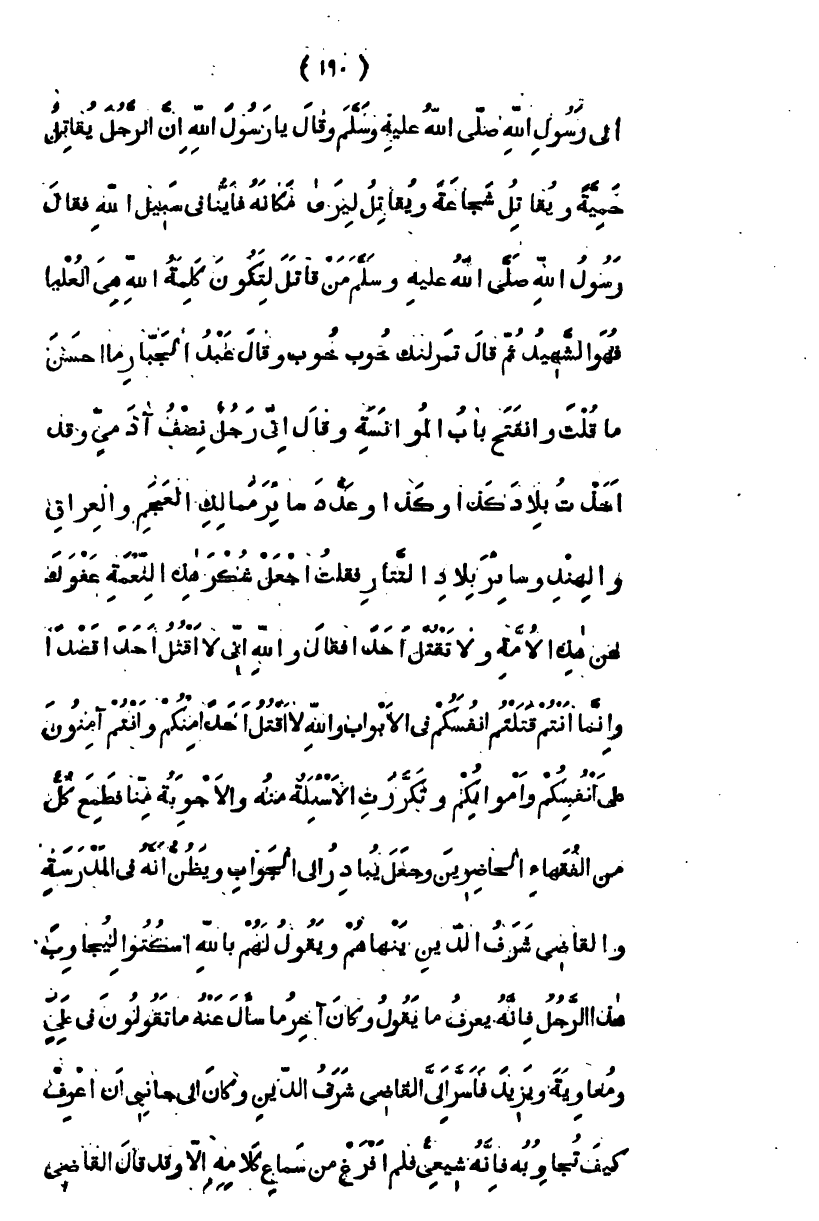 ( ١٩٠ )
اَلى رَسُولِ اللهِ صَلّى اللهُ عليهِ وَسَلَّمَ وقالَ يا رَسُولَ اللهِ اِنَّ الرَّجُلَ يُقاتِلُ
حَمِيَّةً ويُقاتِلُ شَجاعَةً ويُقاتِلُ لِيَرَى مَكانَهُ فأيُّنا فى سَبيلِ اللهِ فقالَ
رَسُولُ اللهِ صَلَّى اللهُ عليهِ وسَلَّمَ مَنْ قاتَلَ لِتَكُونَ كَلِمَةُ اللهِ هِىَ العُلْيا
فهُوَ الشَّهِيدُ ثُمَّ قالَ تمرلنك خُوب خُوب وقالَ عَبْدُ الجَبّارِ ما احسَنَ
ما قُلْتَ وانفَتَح بابُ المُوانَسَةِ وقالَ اِنّى رَجُلٌ نِصْفُ آدَمِىٍّ وقد
اَخَذْتُ بِلادَ كَذا وكَذا وعَدَّدَ سائِرَ مُمالِكِ العَجَمِ والعِراقِ
والهِنْدِ وسائِرَ بِلادِ التَّتارِ فقلتُ اجْعَلْ شُكْرَ هٰذِهِ النِّعْمَةِ عَفْوَكَ
عن هٰذِهِ الاُمَّةِ ولا تَقْتُلْ اَحَدًا فقالَ واللهِ اِنّى لا اَقْتُلُ اَحَدًا قَصْدًا
وإنَّما اَنْتُمْ قَتَلْتُم انفُسَكُمْ فى الاَبْوابِ واللهِ لا اَقْتُلُ اَحَدًا مِنْكُمْ واَنْتُم آمِنُونَ
على اَنْفُسِكُمْ واَمْوالِكُمْ وتَكَرَّرَتِ الاَسْئِلَةُ منهُ والاَجْوِبَةُ مِنّا فطَمِعَ كُلٌّ
من الفُقَهاءِ الحاضِرِينَ وجَعَلَ يُبادِرُ الى الجَوابِ ويَظُنُّ اَنَّهُ فى المَدْرَسَةِ
والقاضى شَرَفُ الدّينِ يَنْهاهُمْ ويَقُولُ لَهُمْ باللهِ اسكُتُوا لِيُجاوِبَ
هٰذا الرَّجُلُ فاِنَّهُ يعرفُ ما يَقُولُ وكانَ آخِرُ ما سألَ عَنْهُ ما تَقُولُونَ فى عَلِىٍّ
ومُعاوِيَةَ ويَزِيدَ فَاَسَرَّ اِلَىَّ القاضى شَرَفُ الدّينِ وكانَ الى جانِبِى اَن اعْرِفْ
كيفَ تُجاوِبُه فاِنَّهُ شِيعِىٌّ فلم اَفْرَغْ من سَماعِ كَلامِهِ اِلّا وقد قالَ القاضِى